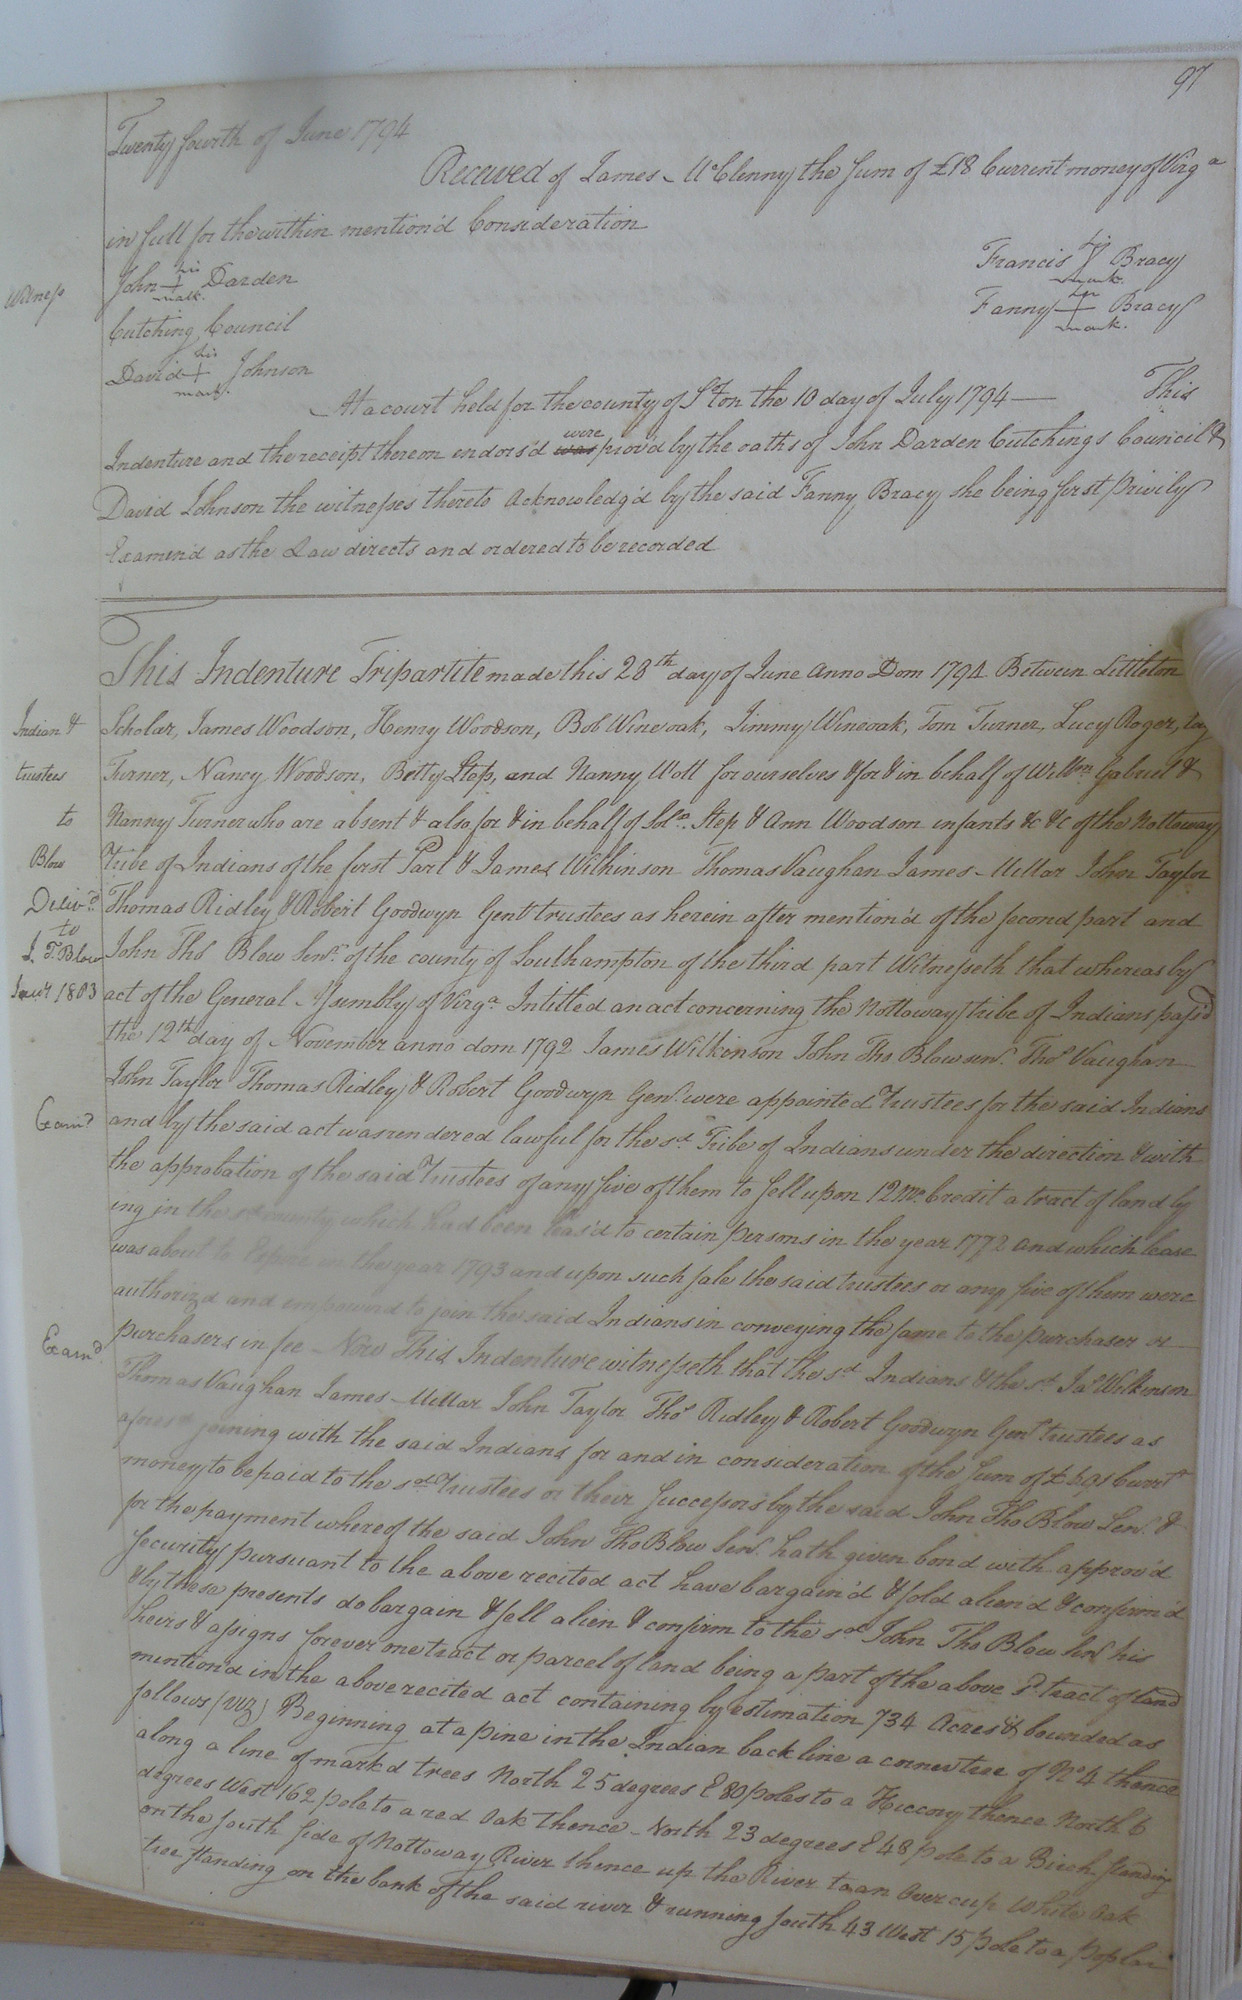 97
Twenty fourth of June 1794
Received of James McClenny the Sum of £18 Current money of Virga
in full for the within mention'd Consideration
Witness
John his + mark. Darden
Francis his mark. Bracy
Cutching Council
Fanny her + mark. Bracy
David his + mark. Johnson
At a court held for the county of S.ton the 10 day of July 1794 — This
Indenture and the receipt thereon endors'd was were prov'd by the oaths of John Darden Cutchings Council &
David Johnson the witnesses thereto Acknowledg'd by the said Fanny Bracy she being first Privily
Examin'd as the Law directs and ordered to be recorded
This Indenture Tripartite made this 28th day of June Anno Dom 1794 Between Littleton
Indian & trustees to Blow
Deliv.d to J. T. Blow 1803
Exam.d
Exam.d
Scholar, James Woodson, Henry Woodson, Bob Wineoak, Jimmy Wineoak, Tom Turner, Lucy Roger,
Turner, Nancy Woodson, Betty Step, and Nanny Wott for ourselves & for & in behalf of Willm. Gabriel &
Nanny Turner who are absent & also for & in behalf of Step & Ann Woodson infants &c &c of the Nottoway
Tribe of Indians of the first Part & James Wilkinson Thomas Vaughan James Millar John Taylor
Thomas Ridley & Robert Goodwyn Gent trustees as herein after mention'd of the second part and
John Thos Blow Senr. of the county of Southampton of the third part Witnesseth that whereas by
act of the General Assembly of Virga. Intitled an act concerning the Nottoway tribe of Indians pass'd
the 12th day of November anno dom 1792 James Wilkinson John Tho Blow senr. Thos Vaughan
John Taylor Thomas Ridley & Robert Goodwyn Gent. were appointed Trustees for the said Indians
and by the said act was rendered lawful for the sd. Tribe of Indians under the direction & with
the approbation of the said Trustees of any five of them to sell upon 12 mo. Credit a tract of land ly
ing in the sd county which had been leas'd to certain persons in the year 1772 and which lease
was about to Expire in the year 1793 and upon such sale the said trustees or any five of them were
authorized and empowered to join the said Indians in conveying the same to the purchaser or
purchasers in fee Now This Indenture witnesseth that the sd. Indians & the sd. Jas Wilkinson
Thomas Vaughan James Millar John Taylor Thos Ridley & Robert Goodwyn Gent trustees as
afores.d joining with the said Indians for and in consideration of the Sum of £ Currt
money to be paid to the sd. Trustees or their Successors by the said John Tho Blow Senr. &
for the payment whereof the said John Tho Blow Senr. hath given bond with approv'd
security pursuant to the above recited act have bargain'd & sold alien'd & confirm'd
& by these presents do bargain & sell alien & confirm to the sd. John Tho Blow Senr his
heirs & assigns forever one tract or parcel of land being a part of the above sd. tract of land
mention'd in the above recited act containing by estimation 734 Acres & bounded as
follows (viz) Beginning at a pine in the Indian back line a corner tree of No. 4 thence
along a line of mark'd trees North 25 degrees E 80 poles to a Hiccory thence North 6
degrees West 162 pole to a red Oak thence North 23 degrees E 48 pole to a Birch standing
on the South side of Nottoway River thence up the River to an Overcup White Oak
tree standing on the bank of the said river & running South 43 West 15 pole to a poplar